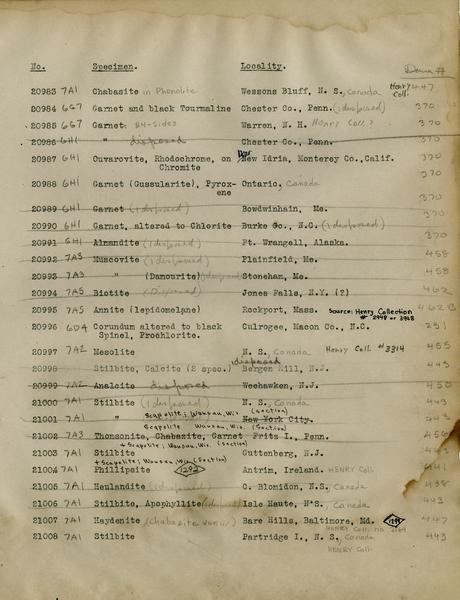 No. Specimen. Locality. Dana #
20983 7A1 Chabasite in Phonolite Wessons Bluff, N. S., Canada Henry Coll. 447
20984 6G7 Garnet and black Tourmaline Chester Co., Penn. (1 disposed) 370
20985 6G7 Garnet. 24-sides Warren, N. H. Henry Coll? 370
20986 6H1 " disposed Chester Co., Penn. 370
20987 6H1 Ouvarovite, Rhodochrose, on New Idria, Monterey Co., Calif. 370
Chromite
20988 6H1 Garnet (Gussularite), Pyrox- Ontario, Canada 370
ene
20989 6H1 Garnet (1 disposed) Bowdwinham, Me. 370
20990 6H1 Garnet, altered to Chlorite Burke Co., N.C. (1 disposed) 370
20991 6H1 Almandite (1 disposed) Ft. Wrangell, Alaska. 370
20992 7A3 Muscovite (1 disposed) Plainfield, Me. 458
20993 7A3 " (Damourite) (disposed) Stoneham, Me. 458
20994 7A5 Biotite (Disposed) Jones Falls, N.Y. (?) 462
20995 7A5 Annite (lepidomelane) Rockport, Mass. Source: Henry Collection 462B
# 2948 or 3948
20996 6D4 Corundum altered to black Culrogee, Macon Co., N.C. 231
Spinel, Prochlorite.
20997 7A2 Mesolite N. S., Canada Henry Coll. #3314 455
20998 Stilbite, Calcite (2 spec.) disposed Bergen Hill, N.J. 443
20999 7A2 Analcite disposed Weehawken, N.J. 450
21000 7A1 Stilbite (1 disposed) N. S., Canada 443
Scapolite; Wausau, Wis. (section)
21001 7A1 " New York City. 443
Scapolite Wausau, Wis. (Section)
21002 7A3 Thomsonite, Chabazite, Garnet Fritz I., Penn. 456
+ Scapolite; Wausau, Wis. (section)
21003 7A1 Stilbite Guttenberg, N.J. 443
+ Scapolite; Wausau, Wis. (Section)
21004 7A1 Phillipsite 1292 Antrim, Ireland. HENRY Coll. 441
21005 7A1 Heulandite (1 disposed) C. Blomidon, N.S., Canada 438
21006 7A1 Stilbite, Apophyllite Isle Haute, N*S. , Canada 443
21007 7A1 Haydenite (Chabazite var.) Bare Hills, Baltimore, Md. 447
HENRY Coll. no.
21008 7A1 Stilbite Partridge I., N. S., Canada 443
HENRY Coll.